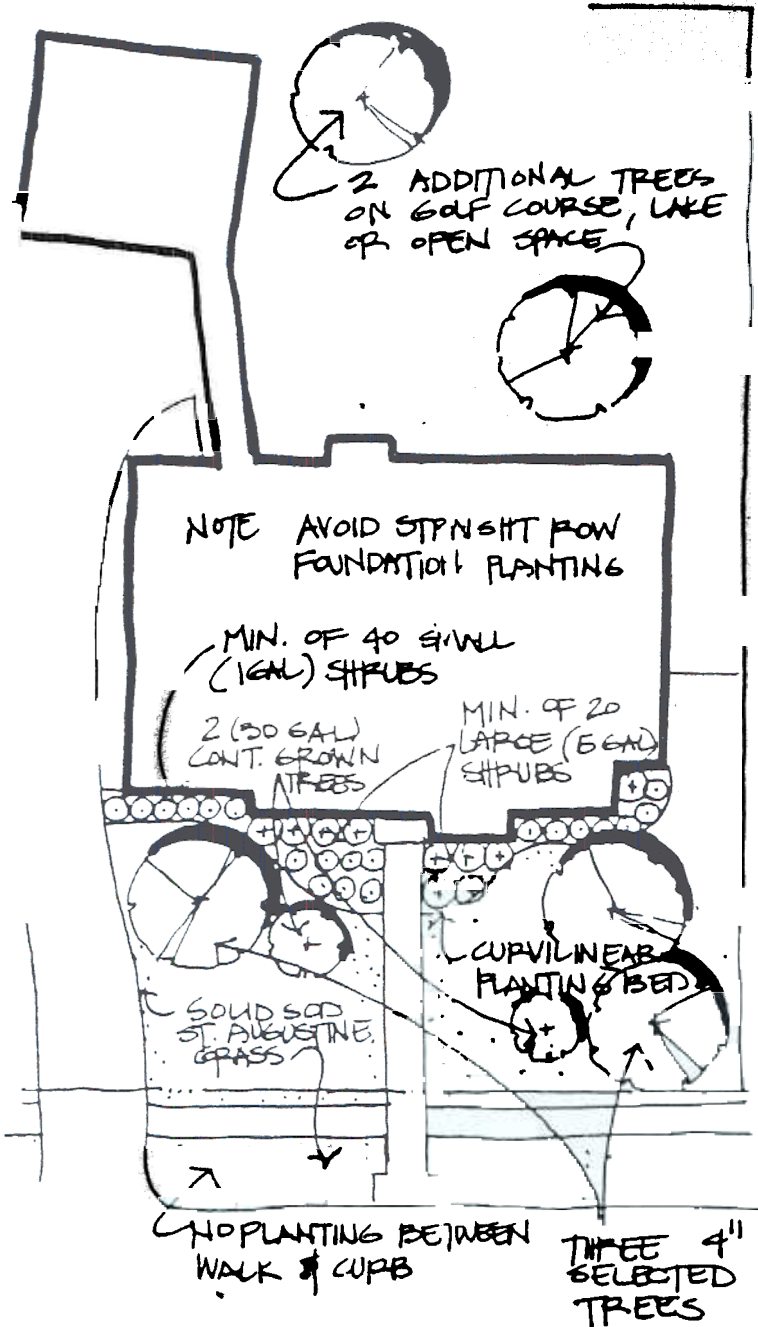 2 ADDITIONAL TREES
ON GOLF COURSE, LAKE
OR OPEN SPACE
NOTE AVOID STRAIGHT ROW
FOUNDATION PLANTING
MIN. OF 40 SMALL
(1GAL) SHRUBS
2 (30 GAL)
CONT. GROWN
TREES
MIN. OF 20
LARGE (5 GAL)
SHRUBS
CURVILINEAR
PLANTING BED
SOLID SOD
ST. AUGUSTINE
GRASS
NO PLANTING BETWEEN
WALK & CURB
THREE 4"
SELECTED
TREES